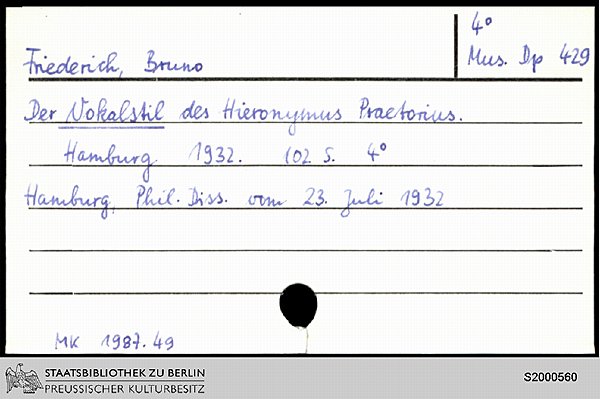 4°
Friederich, Bruno
Mus. Dp 429
Der Vokalstil des Hieronymus Praetorius.
Hamburg 1932. 102 S. 4°
Hamburg, Phil. Diss. vom 23. Juli 1932
MK 1987.49
STAATSBIBLIOTHEK ZU BERLIN
PREUSSISCHER KULTURBESITZ
S2000560